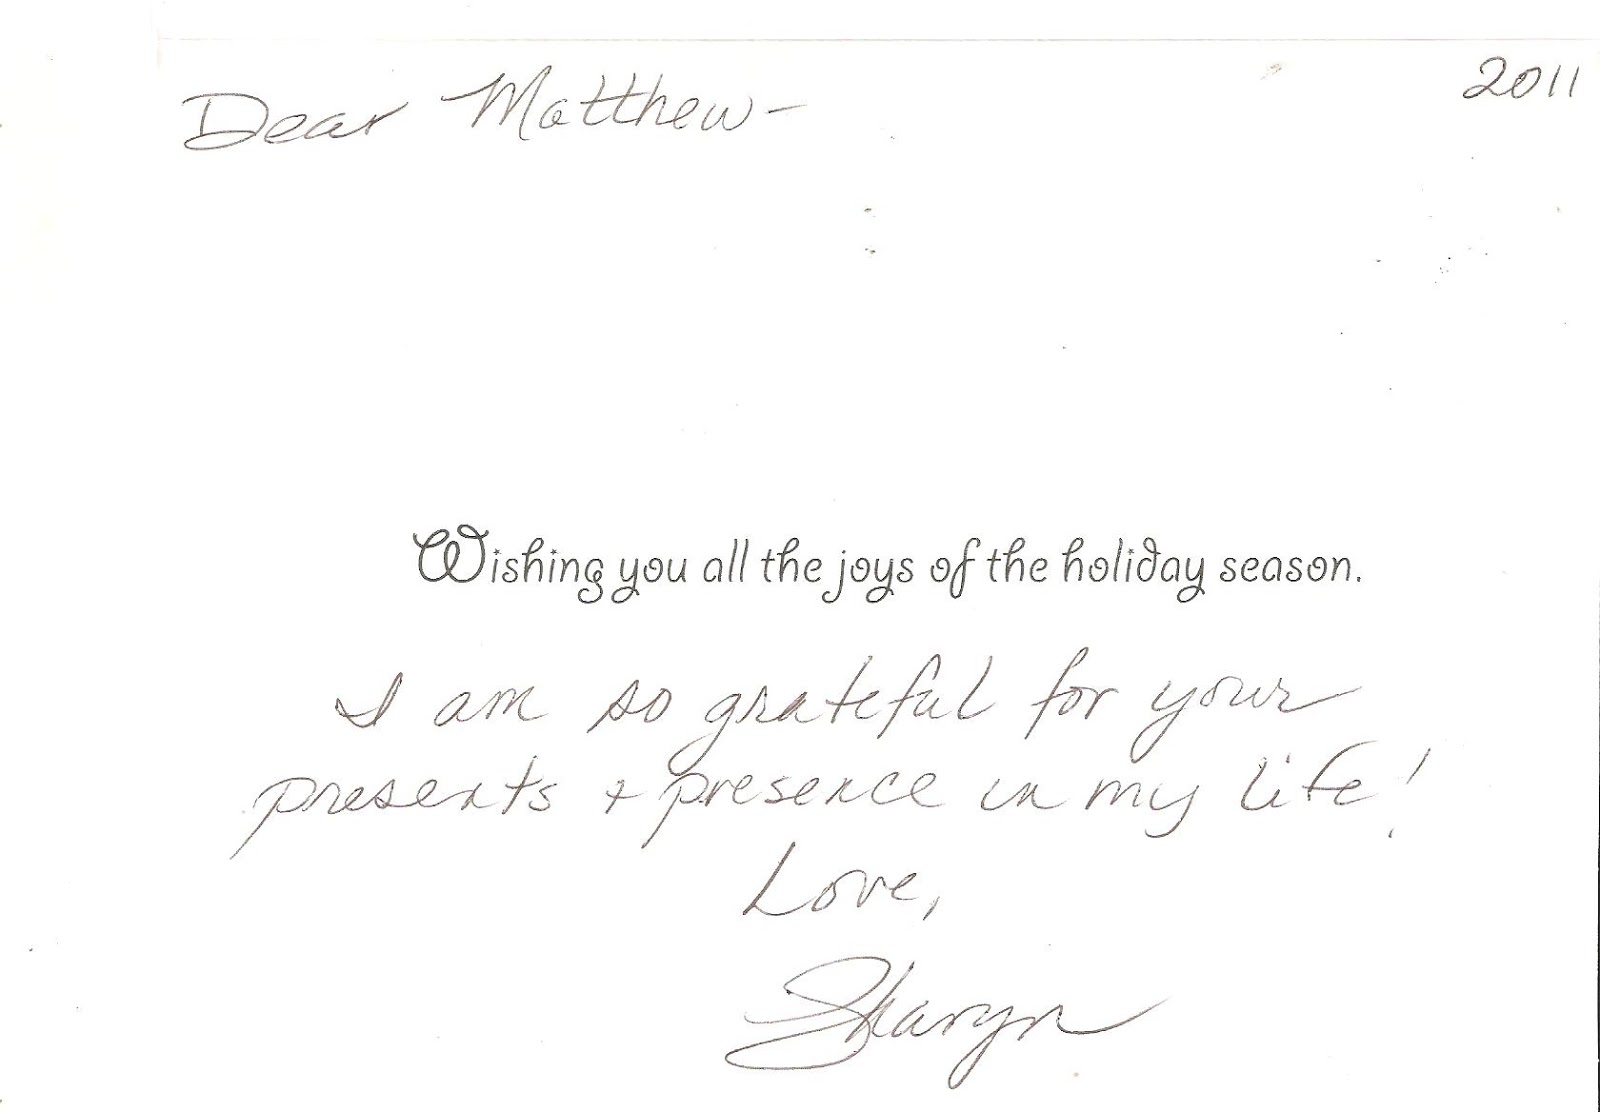 2011
Dear Matthew-
Wishing you all the joys of the holiday season.
I am so grateful for your
presents + presence in my life!
Love,
Sharyn